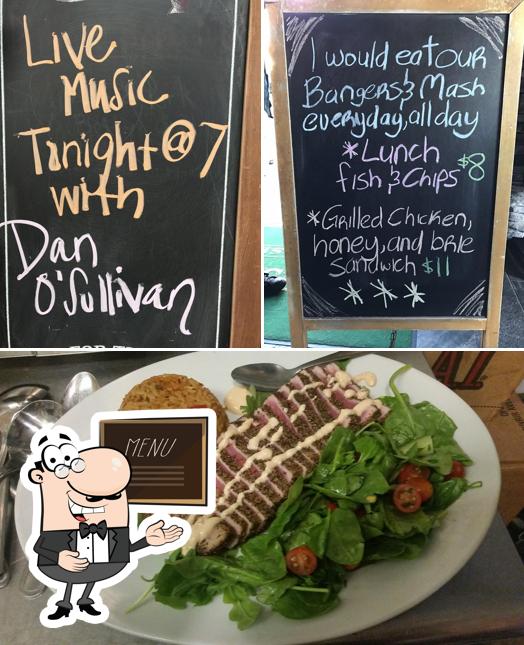 Live
Music
Tonight @ 7
with
Dan
O'Sullivan
I would eat our
Bangers & Mash
everyday, all day
*Lunch $8
fish & Chips
*Grilled Chicken,
honey, and brie
Sandwich $11
MENU